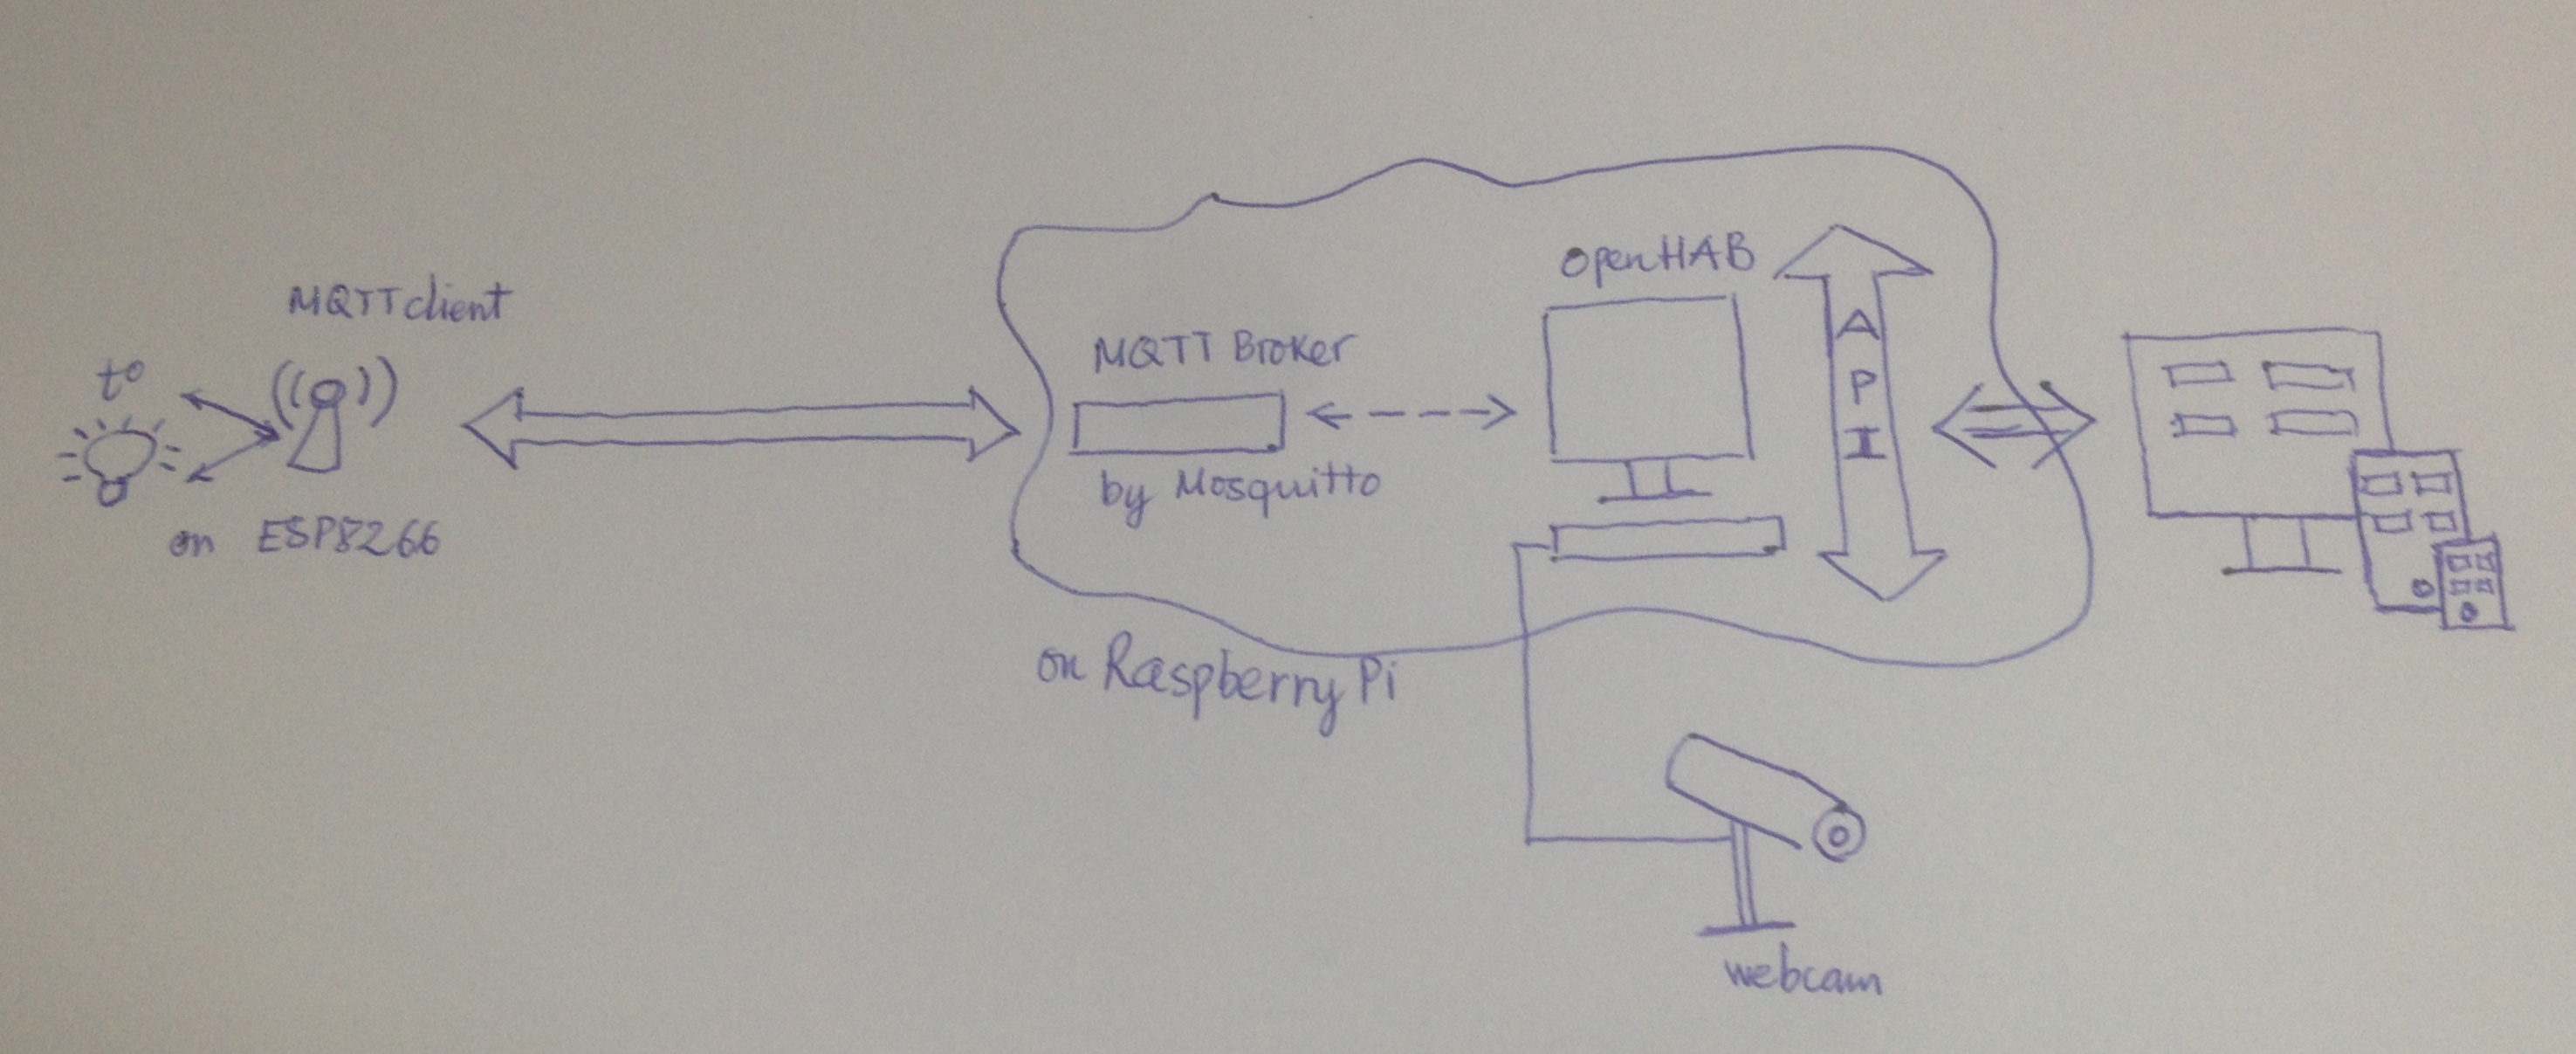 MQTT client
t°
on ESP8266
MQTT Broker
by Mosquitto
openHAB
API
on Raspberry Pi
webcam